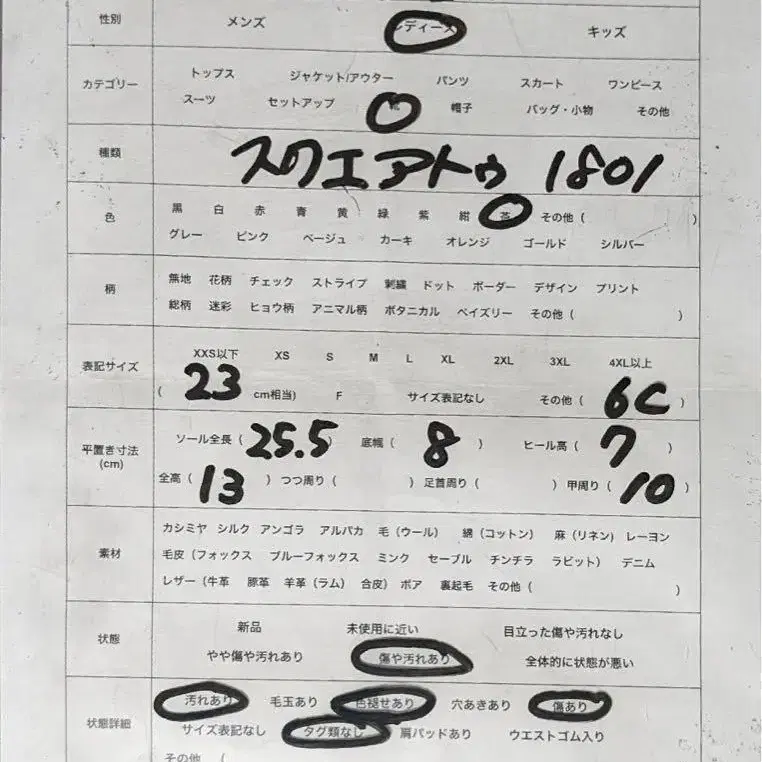 性別 メンズ レディース キッズ
カテゴリー
トップス ジャケット/アウター パンツ スカート ワンピース
スーツ セットアップ 靴 帽子 バッグ・小物 その他
種類 スクエアトゥ 1801
色
黒 白 赤 青 黄 緑 紫 紺 茶 その他 ( )
グレー ピンク ベージュ カーキ オレンジ ゴールド シルバー
柄
無地 花柄 チェック ストライプ 刺繍 ドット ボーダー デザイン プリント
総柄 迷彩 ヒョウ柄 アニマル柄 ボタニカル ペイズリー その他 ( )
表記サイズ
XXS以下 XS S M L XL 2XL 3XL 4XL以上
( 23 cm相当) F サイズ表記なし その他 ( 6C )
平置き寸法
(cm)
ソール全長 ( 25.5 ) 底幅 ( 8 ) ヒール高 ( 7 )
全高 ( 13 ) つつ周り ( ) 足首周り ( ) 甲周り ( 10 )
素材
カシミヤ シルク アンゴラ アルパカ 毛 (ウール) 綿 (コットン) 麻 (リネン) レーヨン
毛皮 (フォックス ブルーフォックス ミンク セーブル チンチラ ラビット) デニム
レザー (牛革 豚革 羊革 (ラム) 合皮) ボア 裏起毛 その他 ( )
状態
新品 未使用に近い 目立った傷や汚れなし
やや傷や汚れあり 傷や汚れあり 全体的に状態が悪い
状態詳細
汚れあり 毛玉あり 色褪せあり 穴あきあり 傷あり
サイズ表記なし タグ類なし 肩パッドあり ウエストゴム入り
その他 (